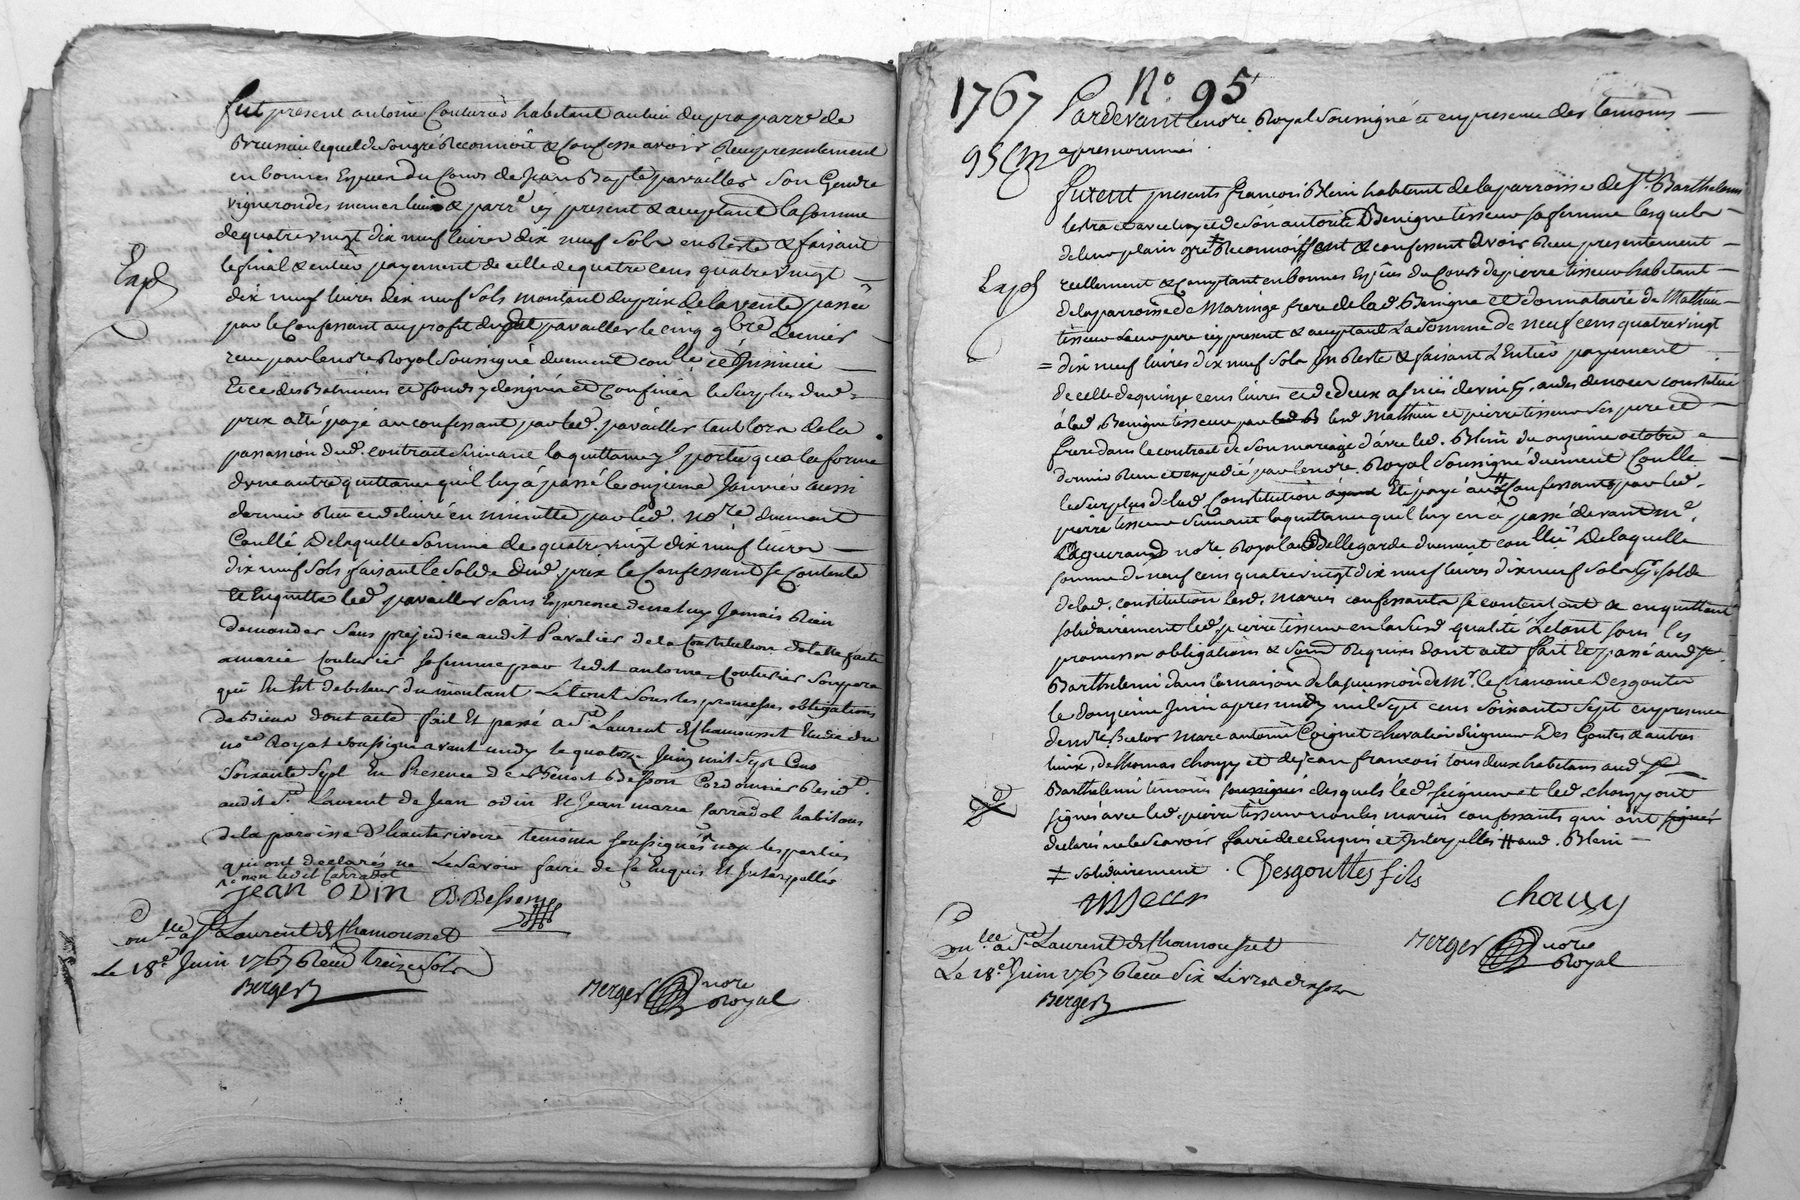 fut present antoine Couturié habitant au lieu du pra parr.e de
Brussieu lequel de son gré Reconnoit & Confesse avoir Reçu presentement
en bonnes Especes du Cours de Jean Bapte pavailler Son Gendre
vigneron des memes lieu & parr.e icy present & acceptant la somme
de quatre vingt dix neuf livres dix neuf sols en Reste & faisant
le final & entier payement de celle de quatre cens quatre vingt
Exp.é
dix neuf livres dix neuf sols montant du prix de la vente passée
par le Confessant au profit dud. pavailler le cinq 9bre dernier
reçu par le no.re Royal soussigné duement con.lé et Insinué
Et ce des Batimens et fonds y designés et Confinés le surplus dud.
prix a été payé au confessant par led. pavailler tant lors de la
passassion dud. contract suivant la quittance y portée qu'a la forme
d'une autre quittance qu'il luy a passé le onzieme Janvier aussi
dernier Reçu et delivré en minutte par led. no.re duement
Conllé De laquelle somme de quatre vingt dix neuf livres
dix neuf sols faisant le solde dud. prix le Confessant se Contente
Et Enquitte led. pavailler sans Esperence de ne luy Jamais Rien
demander sans prejudice audit Pavalier de la Constitution dotalle faite
a marie Couturier sa femme par ledit antoine Couturier son pere
qui En est debiteur du montant Le tout sous les promesses obligations
de Bieux dont acte fait Et passé a St. Laurent de Chamousset Etude du
no.re Royal soussigné avant midy le quatorze Juin mil Sept Cens
Soixante Sept En Presence de Benoit Besson Cordonnier Resid.t
audit St. Laurent de Jean odin & Jean marie farradol habitans
de la paroisse d'hauterivoire temoins soussignés non les parties
qui ont declarés ne Le Savoir faire de Ce Enquis Et Interpellés
no non ledit farradol
Jean ODIN B. Besson
Con.llé a St. Laurent de Chamousset
Le 18.e Juin 1767 Reçu treize Sols
Berger
Berger no.re Royal
1767 N.o 95
Pardevant le no.re Royal soussigné et en presence des temoins
95
apres nommés.
furent presents francois Blein habitant de la parroisse de St. Barthelemi
lestra et avec luy et de son autorité Benigne tisseur sa femme lesquels
de leur plain gré Reconnoissent & confessent avoir Reçu presentement
reellement & Comptant en bonnes Espèces du Cours de pierre tisseur habitant
Exp.é
de la parroisse de Maringe frere de lad. Benigne et donnataire de Mathieu
tisseur leur pere icy present & acceptant La somme de neuf cens quatre vingt
= dix neuf livres dix neuf sols En Reste & faisant L'Entier payement
de celle de quinze cens livres et de deux asnées de vin aides de noces constituée
à lad. Benigne tisseur par lesd. Mathieu et pierre tisseur ses pere et
frere dans le contrat de son mariage d'avec led. Blein du onzieme octobre
dernier Reçu et expedié par le no.re Royal soussigné duement Conllé
le surplus de lad. Constitution Eté payé aux Confessants par led.
pierre tisseur suivant la quittance qu'il luy en a passé devant m.e
Laguerand no.re Royal a Bellegarde duement conllé De laquelle
somme de neuf cens quatre vingt dix neuf livres dix neuf sols solde
de lad. constitution lesd. mariés confessants se contentent & enquittent
solidairement led. pierre tisseur en lad. qualité Le tout sous les
promesses obligations & Soumd. Requises dont acte fait Et passé aud. St.
Barthelemi dans la maison de la pension de M.r le Chanoine Desgoutes
le douzieme Juin apres midy mil Sept cens Soixante Sept en presence
de m.re Marc antoine Coignet chevalier Seigneur Des Goutes & autres
lieux, de thomas chouvy et de jean francois tous deux habitans aud. St.
Barthelemi temoins soussignés desquels led. Seigneur et led. chouvy ont
signés avec led. pierre tisseur non les mariés confessants qui ont signés
declaré ne le Scavoir faire de ce Enquis et Interpellés # aud. Blein
≠ solidairement. Desgouttes fils
tisseur chouvy
Con.llé a St. Laurent de Chamousset
Le 18.e Juin 1767 Reçu Six Livres dix sols
Berger
Berger no.re Royal